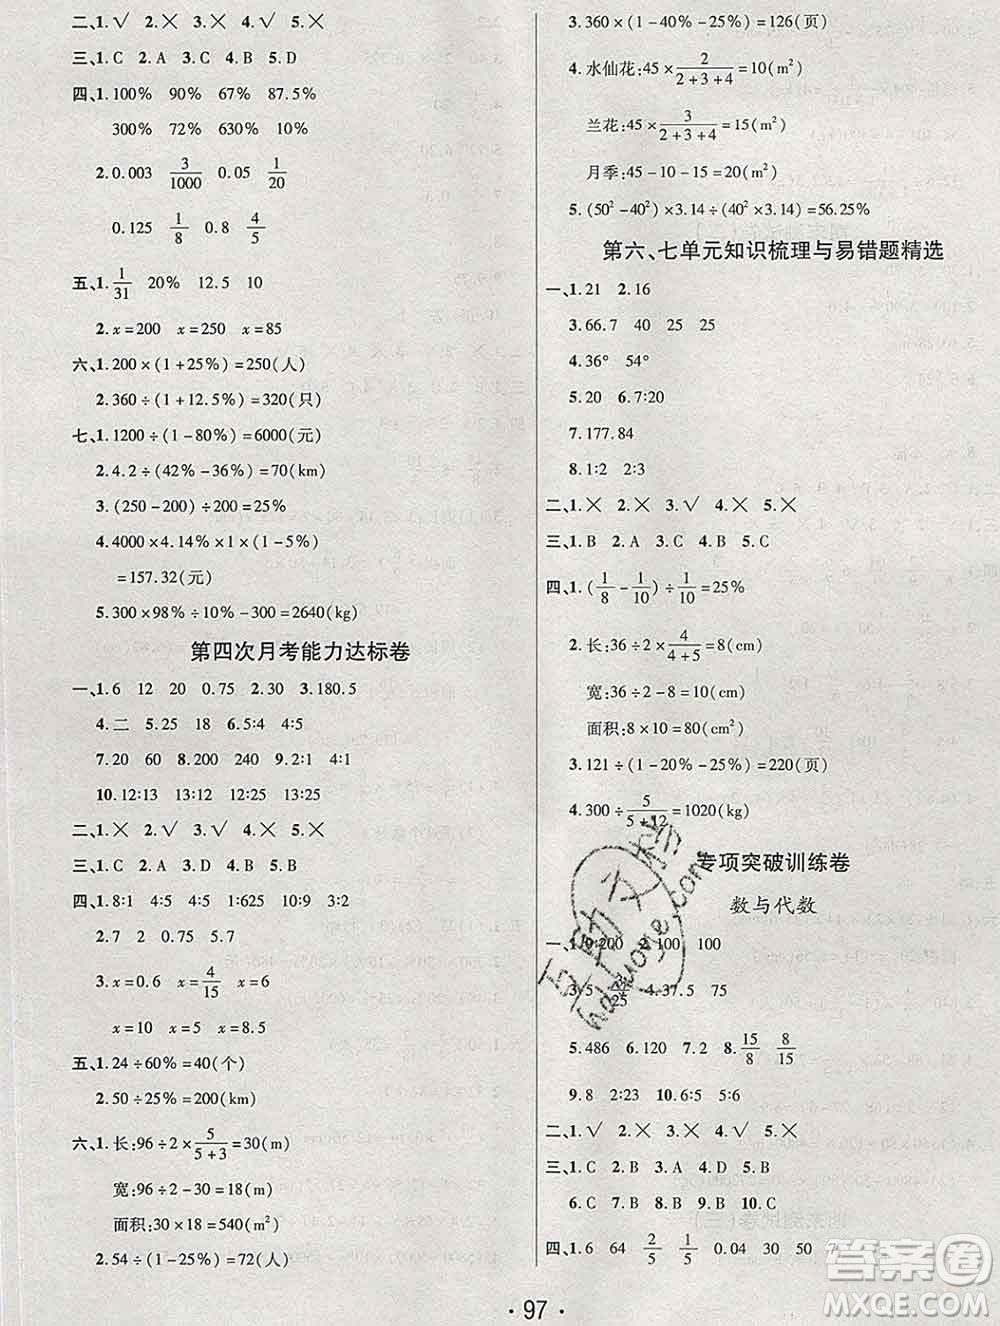 二、1.√ 2.× 3.× 4.√ 5.×
三、1.C 2.A 3.C 4.B 5.D
四、1.100% 90% 67% 87.5%
300% 72% 630% 10%
2.0.003 3/1000 0.05 1/20
0.125 1/8 0.8 4/5
五、1.1/31 20% 12.5 10
2.x=200 x=250 x=85
六、1.200×(1+25%)=250(人)
2.360÷(1+12.5%)=320(只)
七、1.1200÷(1-80%)=6000(元)
2.4.2÷(42%-36%)=70(km)
3.(250-200)÷200=25%
4.4000×4.14%×1×(1-5%)
=157.32(元)
5.300×98%÷10%-300=2640(kg)
第四次月考能力达标卷
一、1.6 12 20 0.75 2.30 3.180.5
4.二 5.25 18 6.5∶4 4∶5
7.20 60 8.200 240 9.2∶1 1∶2
10.12∶13 13∶12 12∶25 13∶25
二、1.× 2.√ 3.√ 4.× 5.×
三、1.C 2.A 3.D 4.A 5.C
四、1.8∶1 4∶5 4∶5 1∶2
2.7 2 0.75 5
3.x=0.6 x=4/15 x=6
x=10 x=5 x=8.5
五、1.24÷60%=40(个)
2.50÷25%=200(km)
六、1.长:96÷2×5/(5+3)=30(m)
宽:96÷2-30=18(m)
面积:30×18=540(m²)
2.54÷(1-1/4)=72(人)
3.360×(1-40%-25%)=126(页)
4.水仙花:45×2/(2+3+4)=10(m²)
兰花:45×3/(2+3+4)=15(m²)
月季:45-10-15=20(m²)
5.(50²-40²)×3.14÷(40²×3.14)=56.25%
第六、七单元知识梳理与易错题精选
一、1.21 2.16
3.66.7 40 25 25
4.36° 54°
5.20 6.7∶20
7.177.84
8.1∶2 2∶3
二、1.× 2.× 3.√ 4.× 5.×
三、1.B 2.A 3.C 4.B 5.C
四、1.(1/8-1/10)÷1/10=25%
2.长:36÷2×4/(4+5)=8(cm)
宽:36÷2-8=10(cm)
面积:8×10=80(cm²)
3.121÷(1-20%-25%)=220(页)
4.300÷5/(5+12)=1020(kg)
专项突破训练卷
数与代数
一、1.9 200 2.100 100
3.5 /25 4.37.5 75
5.486 6.120 7.2 8.15/8 8/15
9.8 2∶23 10.6∶5 5∶6
二、1.√ 2.× 3.× 4.√ 5.×
三、1.C 2.B 3.A 4.D 5.B
6.C 7.B 8.B 9.B 10.C
四、1.6 64 2/5 1/5 0.04 30 50 7
·97·
答案圈
MXQE.COM